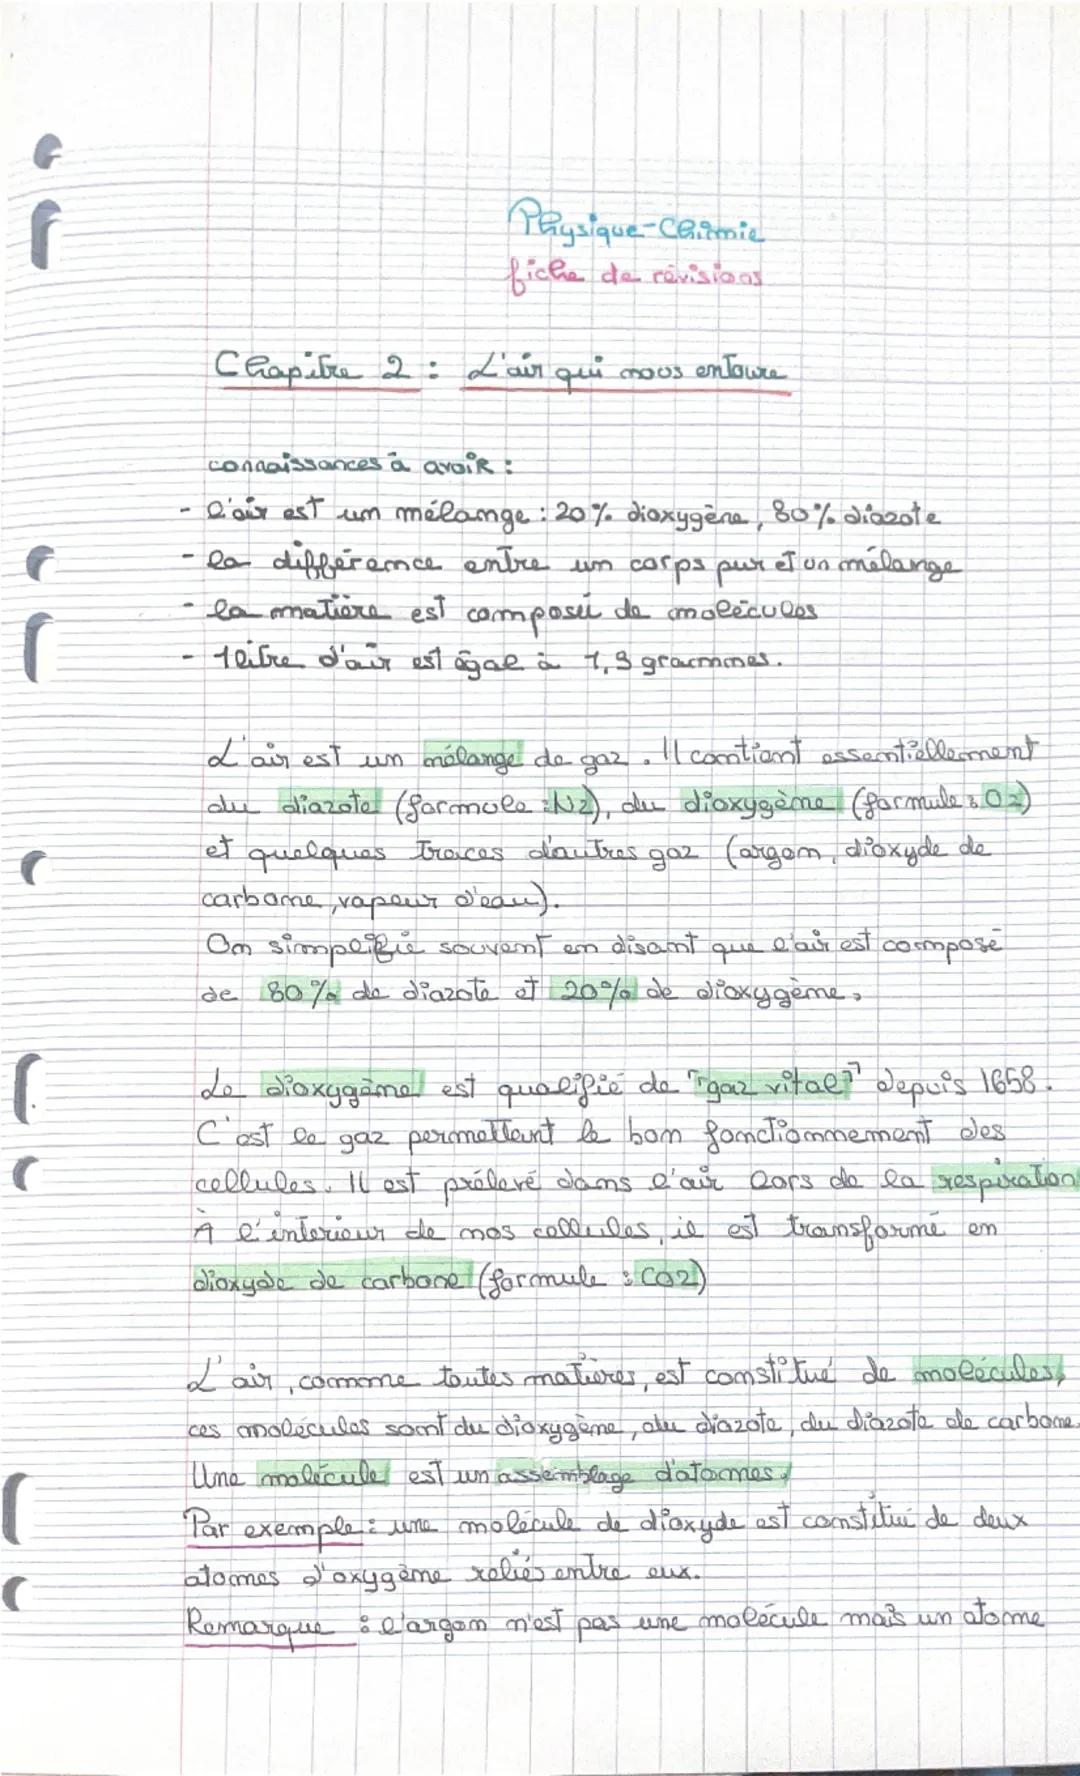 Physique-Chimie
fiche de révisions
Chapitre 2 : L'air qui nous entoure
connaissances à avoir :
- l'air est un mélange : 20% dioxygène, 80% diazote
- la différence entre un corps pur et un mélange
- la matière est composé de molécules
- 1 litre d'air est égal à 1,3 grammes.
L'air est un mélange de gaz. Il contient essentiellement
du diazote (formule : N2), du dioxygène (formule : O2)
et quelques traces d'autres gaz (argon, dioxyde de
carbone, vapeur d'eau).
On simplifie souvent en disant que l'air est composé
de 80% de diazote et 20% de dioxygène.
Le dioxygène est qualifié de "gaz vital" depuis 1658.
C'est le gaz permettant le bon fonctionnement des
cellules. Il est prélevé dans l'air lors de la respiration
À l'intérieur de nos cellules, il est transformé en
dioxyde de carbone (formule : CO2)
L'air, comme toutes matières, est constitué de molécules,
ces molécules sont du dioxygène, du diazote, du diazote de carbone.
Une molécule est un assemblage d'atomes.
Par exemple : une molécule de dioxyde est constitué de deux
atomes d'oxygène reliés entre eux.
Remarque : l'argon n'est pas une molécule mais un atome